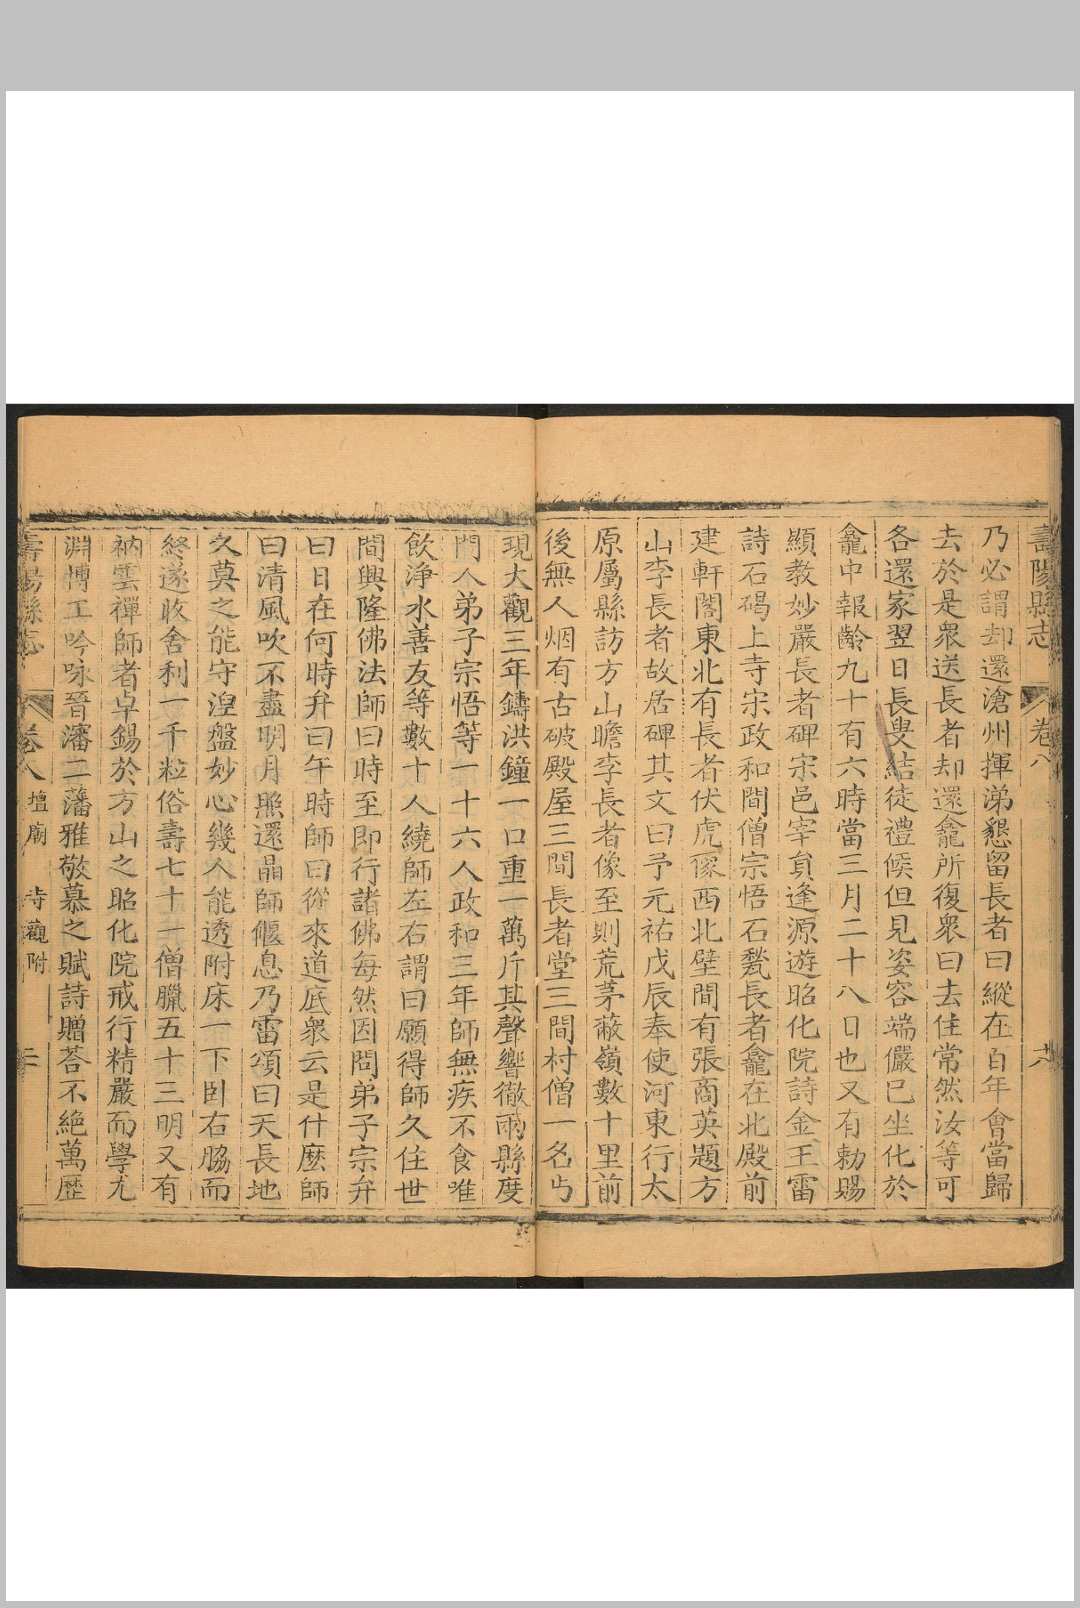 壽陽縣志
卷八
廿八
乃必謂却還滄州揮涕懇留長者曰縱在百年會當歸
去於是眾送長者却還龕所復衆曰去住常然汝等可
各還家翌日長叟結徒禮候但見姿容端儼已坐化於
龕中報齡九十有六時當三月二十八日也又有勅賜
顯教妙嚴長者碑宋邑宰負逢源遊昭化院詩金王雷
詩石碣上寺宋政和間僧宗悟石甃長者龕在北殿前
建軒閣東北有長者伏虎像西北壁間有張商英題方
山李長者故居碑其文曰予元祐戊辰奉使河東行太
原屬縣訪方山瞻李長者像至則荒茅蔽嶺數十里前
後無人烟有古破殿屋三間長者堂三間村僧一名丐
現大觀三年鑄洪鐘一口重一萬斤其聲響徹兩縣度
門人弟子宗悟等一十六人政和三年師無疾不食唯
飲淨水善友等數十人繞師左右謂曰願得師久住世
間興隆佛法師曰時至即行諸佛每然因問弟子宗弁
曰日在何時弁曰午時師曰從來道底衆云是什麼師
曰清風吹不盡明月照還晶師偃息乃雷頌曰天長地
久莫之能守湼盤妙心幾人能透附床一下卧右脇而
終遂收舍利一千粒俗壽七十一僧臘五十三明又有
衲雲禪師者卓錫於方山之昭化院戒行精嚴而學尤
淵博工吟咏晉瀋二藩雅敬慕之賦詩贈荅不絶萬歷
壽陽縣志
卷八
壇廟
寺觀附